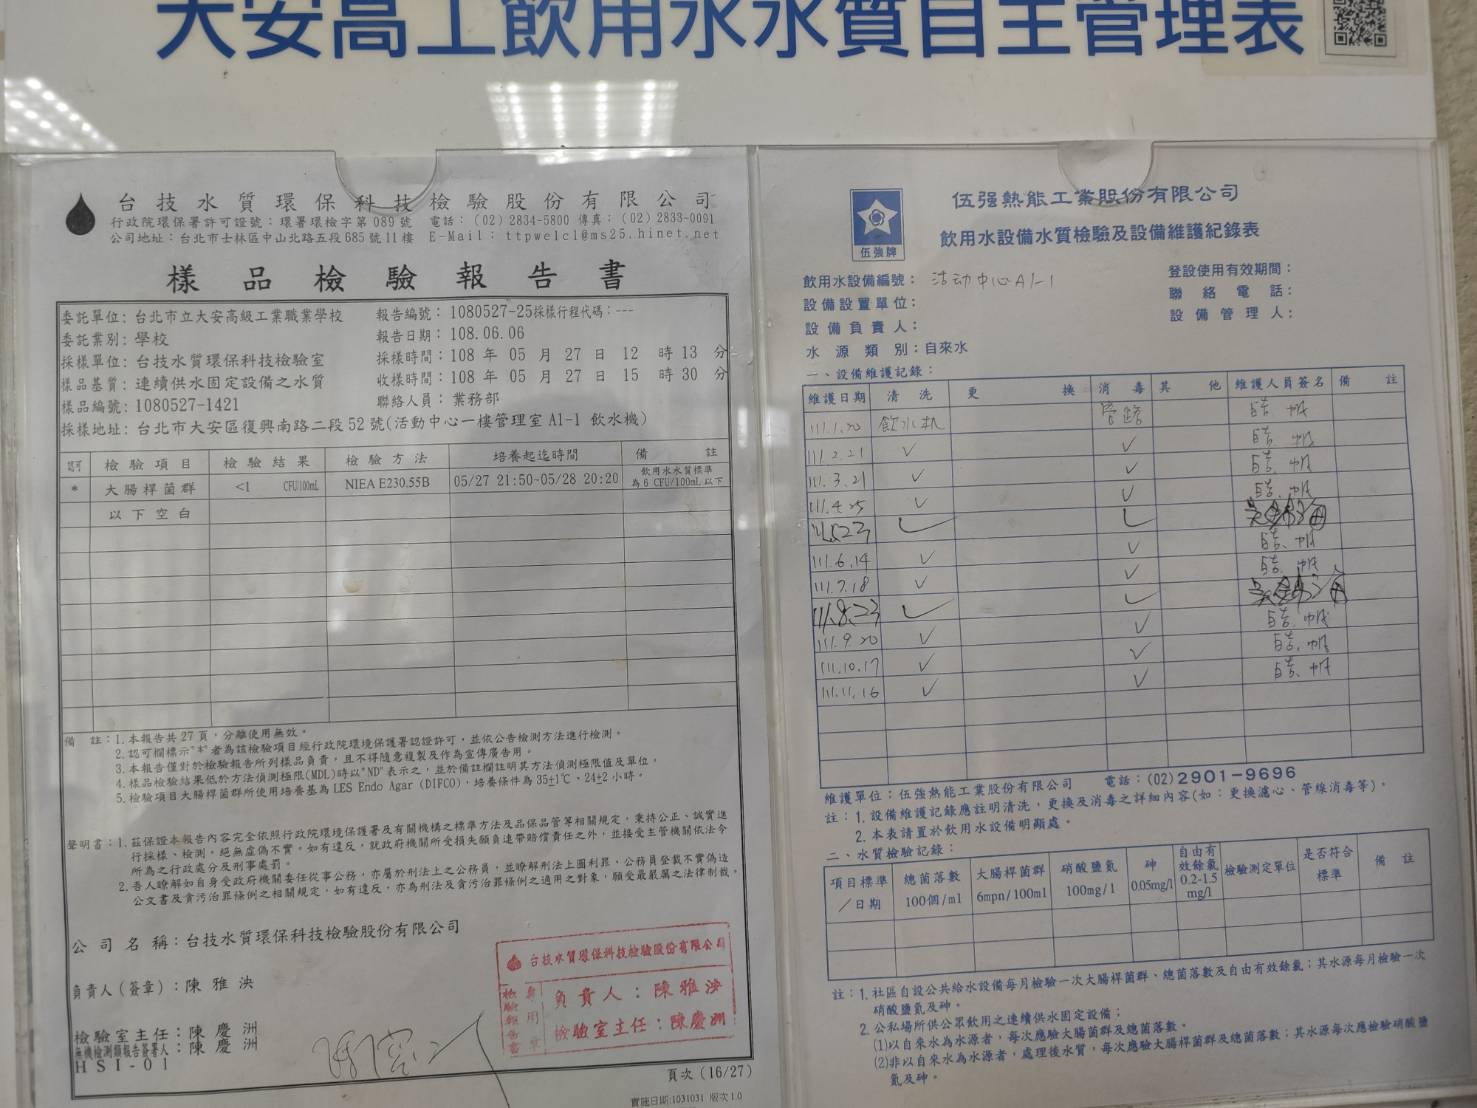 大安高工飲用水水質自主管理表
台技水質環保科技檢驗股份有限公司
行政院環保署許可證號：環署環檢字第089號 電話：(02) 2834-5800 傳真：(02) 2833-0091
公司地址：台北市士林區中山北路五段685號11樓 E-Mail：ttpwelcl@ms25.hinet.net
樣品檢驗報告書
委託單位：台北市立大安高級工業職業學校 報告編號：1080527-25採樣行程代碼：---
委託業別：學校 報告日期：108.06.06
採樣單位：台技水質環保科技檢驗室 採樣時間：108 年 05 月 27 日 12 時 13 分
樣品基質：連續供水固定設備之水質 收樣時間：108 年 05 月 27 日 15 時 30 分
樣品編號：1080527-1421 聯絡人員：業務部
採樣地址：台北市大安區復興南路二段52號(活動中心一樓管理室A1-1 飲水機)
認可 檢驗項目 檢驗結果 檢驗方法 培養起迄時間 備註
* 大腸桿菌群 <1 CFU/100mL NIEA E230.55B 05/27 21:50~05/28 20:20 飲用水水質標準為6 CFU/100mL以下
以下空白
備 註：1.本報告共27頁，分離使用無效。
2.認可欄標示"*"者為該檢驗項目經行政院環境保護署認證許可，並依公告檢測方法進行檢測。
3.本報告僅對於檢驗報告所列樣品負責，且不得隨意複製及作為宣傳廣告用。
4.樣品檢驗結果低於方法偵測極限(MDL)時以"ND"表示之，並於備註欄註明其方法偵測極限值及單位。
5.檢驗項目大腸桿菌群所使用培養基為LES Endo Agar (DIFCO)，培養條件為35±1℃、24±2小時。
聲明書：1.茲保證本報告內容完全依照行政院環境保護署及有關機構之標準方法及品保品管等相關規定，秉持公正、誠實進
行採樣、檢測。絕無虛偽不實，如有違反，就政府機關所受損失願負連帶賠償責任之外，並接受主管機關依法令
所為之行政處分及刑事處罰。
2.吾人瞭解如自身受政府機關委任從事公務，亦屬於刑法上之公務員，並瞭解刑法上圖利罪、公務員登載不實偽造
公文書及貪污治罪條例之相關規定，如有違反，亦為刑法及貪污治罪條例之適用之對象，願受最嚴厲之法律制裁。
公司名稱：台技水質環保科技檢驗股份有限公司
負責人(簽章)：陳雅泱
檢驗室主任：陳慶洲
無機檢測類報告簽署人：陳慶洲
HSI-01
台技水質環保科技檢驗股份有限公司
檢驗報告書專用章
負責人：陳雅泱
檢驗室主任：陳慶洲
頁次 (16/27)
實施日期:1031031 版次1.0
伍強牌
伍强熱能工業股份有限公司
飲用水設備水質檢驗及設備維護紀錄表
飲用水設備編號：活动中心A1-1 登設使用有效期間：
設備設置單位： 聯絡電話：
設備負責人： 設備管理人：
水源類別：自來水
一、設備維護記錄：
維護日期 清洗 更換 消毒 其他 維護人員簽名 備註
111.1.20 飲水机 管路
111.2.21 ✓ ✓
111.3.21 ✓ ✓
111.4.25 ✓ ✓
111.5.23 ✓ ✓
111.6.14 ✓ ✓
111.7.18 ✓ ✓
111.8.23 ✓ ✓
111.9.20 ✓ ✓
111.10.17 ✓ ✓
111.11.16 ✓ ✓
維護單位：伍強熱能工業股份有限公司 電話：(02)2901-9696
註：1. 設備維護記錄應註明清洗，更換及消毒之詳細內容(如：更換濾心、管線消毒等)。
2. 本表請置於飲用水設備明顯處。
二、水質檢驗記錄：
項目標準／日期 總菌落數100個/ml 大腸桿菌群6mpn/100ml 硝酸鹽氮100mg/l 砷0.05mg/l 自由有效餘氯0.2-1.5mg/l 檢驗測定單位 是否符合標準 備註
註：1. 社區自設公共給水設備每月檢驗一次大腸桿菌群、總菌落數及自由有效餘氯；其水源每月檢驗一次
硝酸鹽氮及砷。
2. 公私場所供公眾飲用之連續供水固定設備；
(1)以自來水為水源者，每次應驗大腸菌群及總菌落數。
(2)非以自來水為水源者，處理後水質，每次應驗大腸桿菌群及總菌落數；其水源每次應檢驗硝酸鹽
氮及砷。